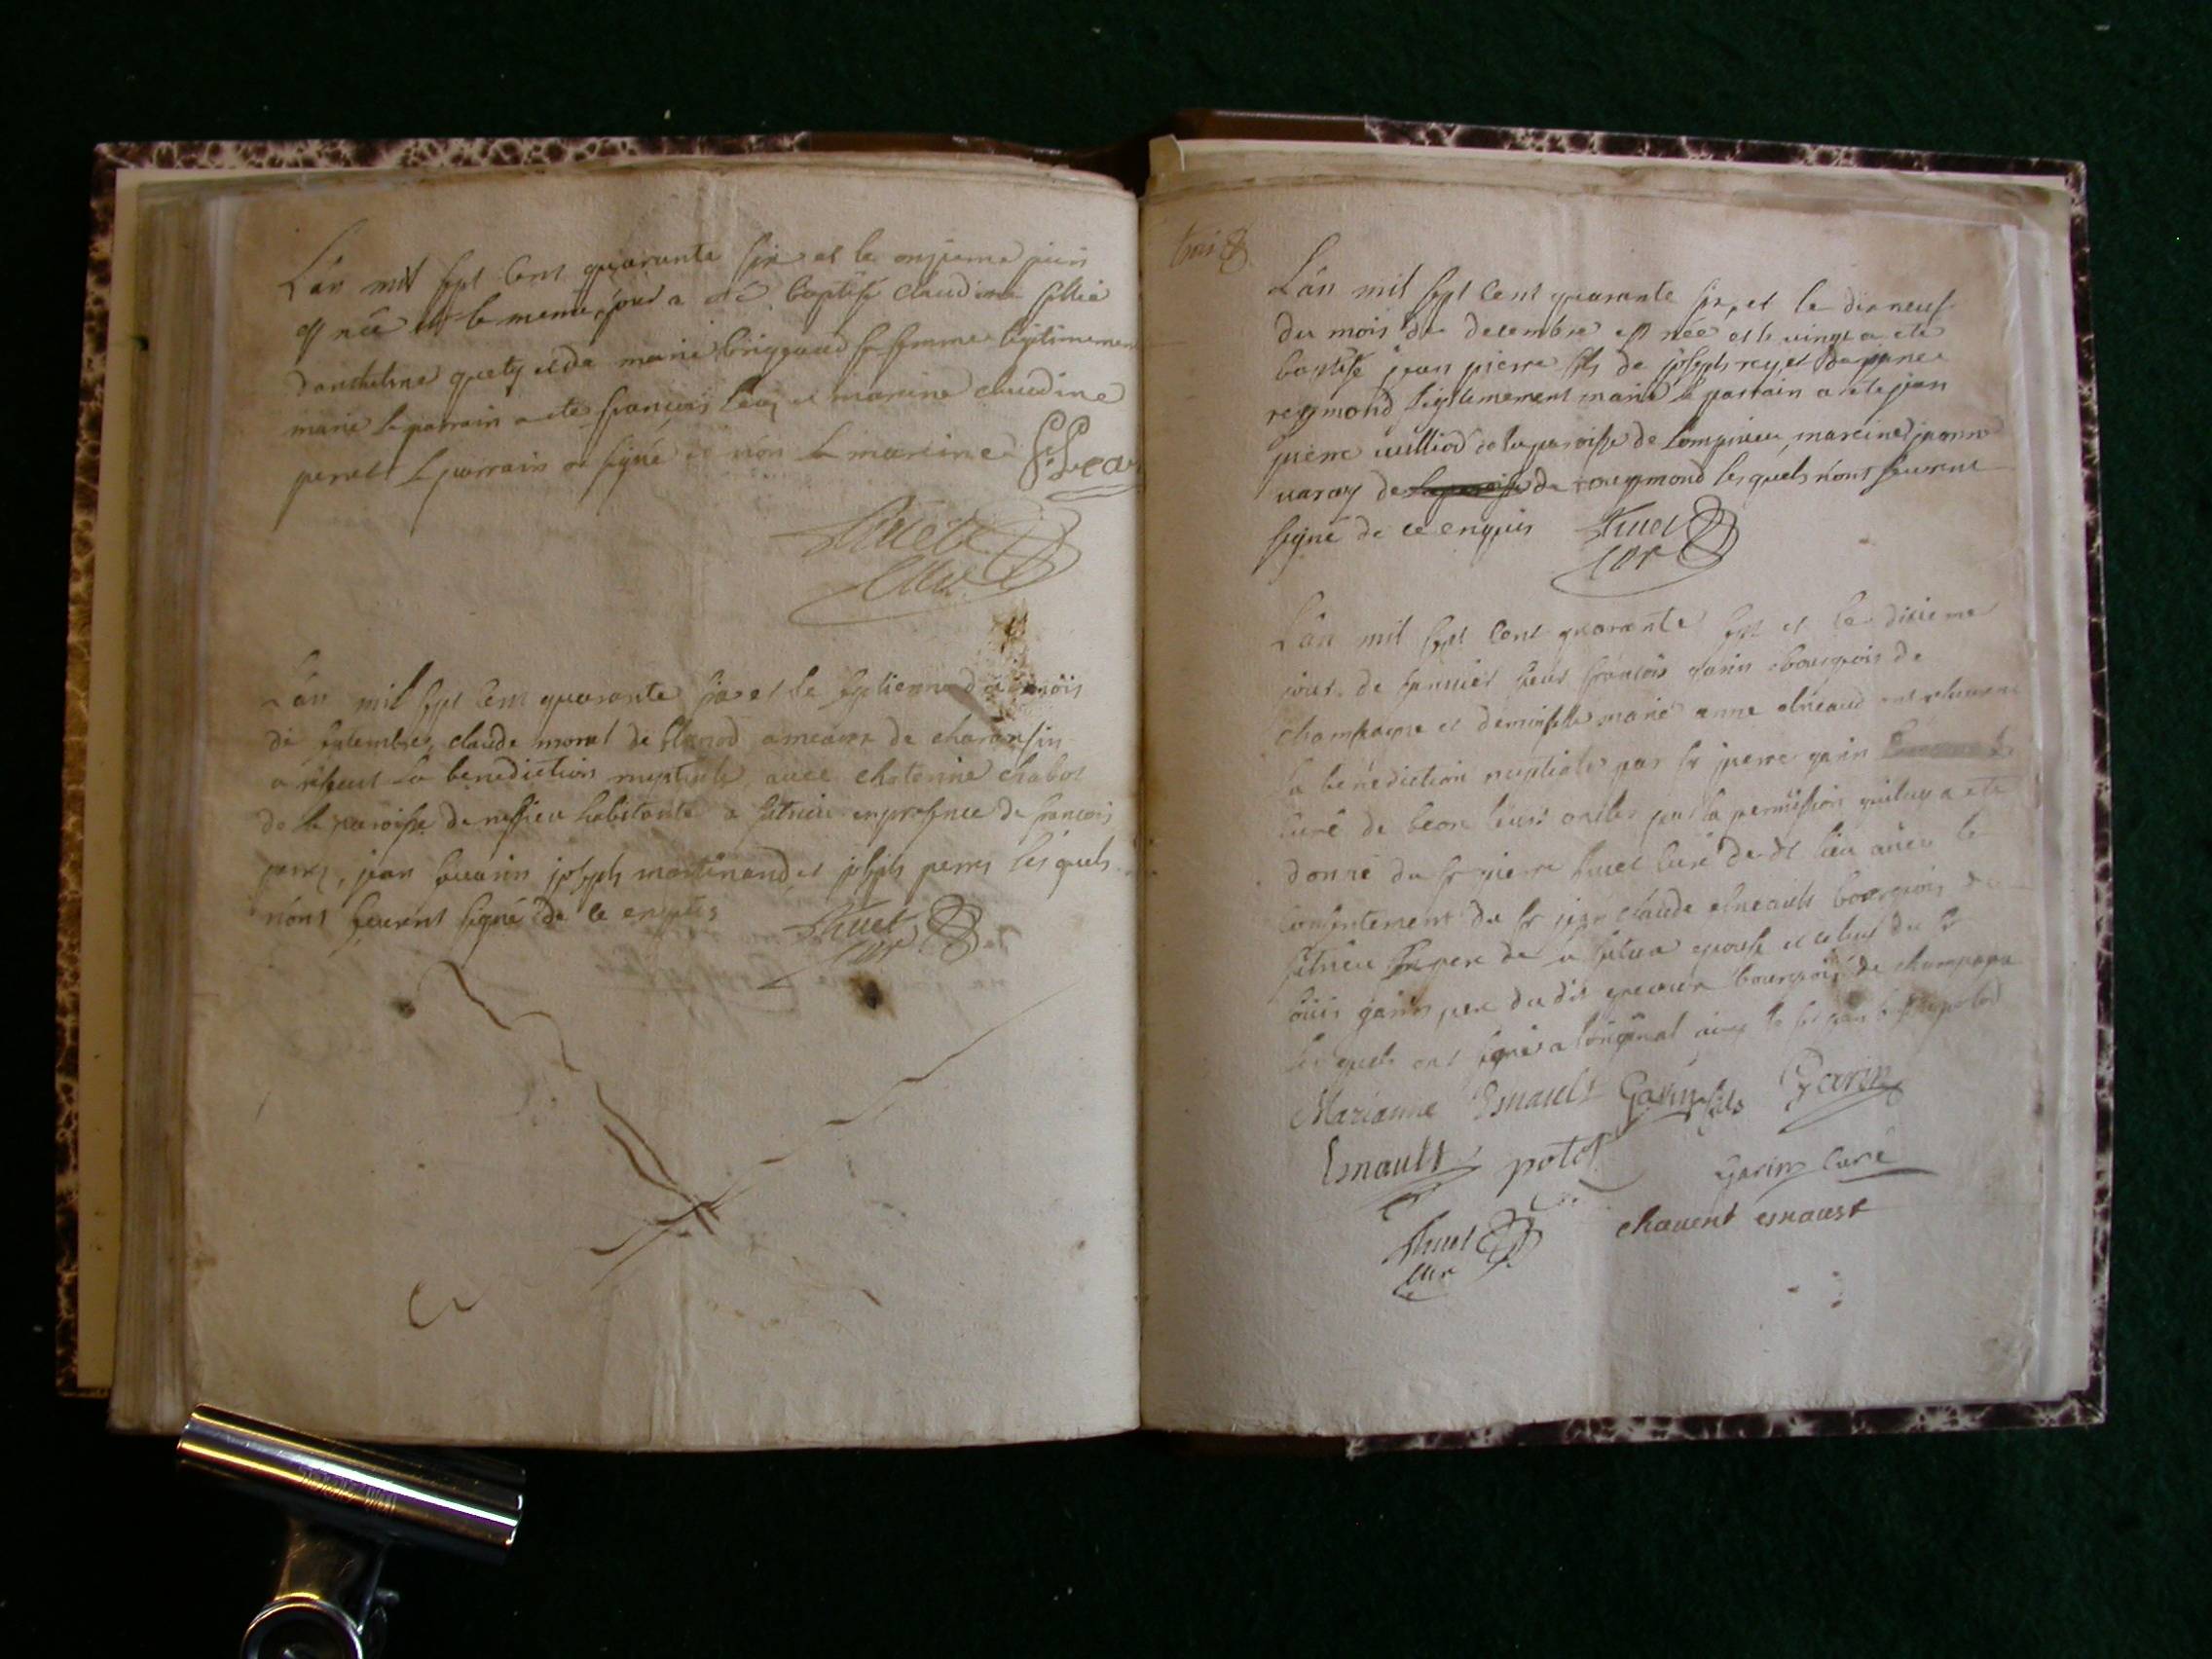 L'an mil sept cent quarante six et le onzieme juin
est née et le meme jour a été baptisé claudine fillie
danthelme quety et de marie briggaud sa femme legitimement
marié le parrain a ete françois leaz et mareine claudine
peret le parrain a signé et non la mareine
Huet
Curé
L'an mil sept cent quarante six et le septieme du mois
de septembre claude moret de hameaux de charansin
a receut la benediction nuptiale avec chaterine chabot
de la paroisse de habitante a sutrieu en presence de françois
peret, jean guarin joseph martinand et joseph perret les quels
n'ont seurent signé de ce enquis Huet
cur
trois
L'an mil sept cent quarante six, et le dixneuf
du mois de decembre est née et le vingt a ete
baptisé jean pierre fils de joseph rey, et de
reymond legitemement marié le parrain a ete jean
pierre vulliod de la paroisse de lompnieu, mareine jeanne
varay de de reymond les quels n'ont seurent
signé de ce enquis Huet
cur
L'an mil sept cent quarante sept et le dixieme
jour de janvier sieur françois garin bourgeois de
champagne et demoiselle marie anne esneaud ont receurent
la benediction nuptiale par sr pierre garin
curé de beon leurs oncle par la permission qui luy a ete
donné du sr pierre huet curé de dt lieu avec le
consentement du sr jean claude esneault bourgeois de
sutrieu pere de la future epouse et celuy du sr
louis garin pere du dit epoux bourgeois de champagne
les quels ont signé a l'original avec le sr
Marianne Esnault Garin fils Garin
Esnault potot
garin Curé
Huet
cur
chavent esnaust